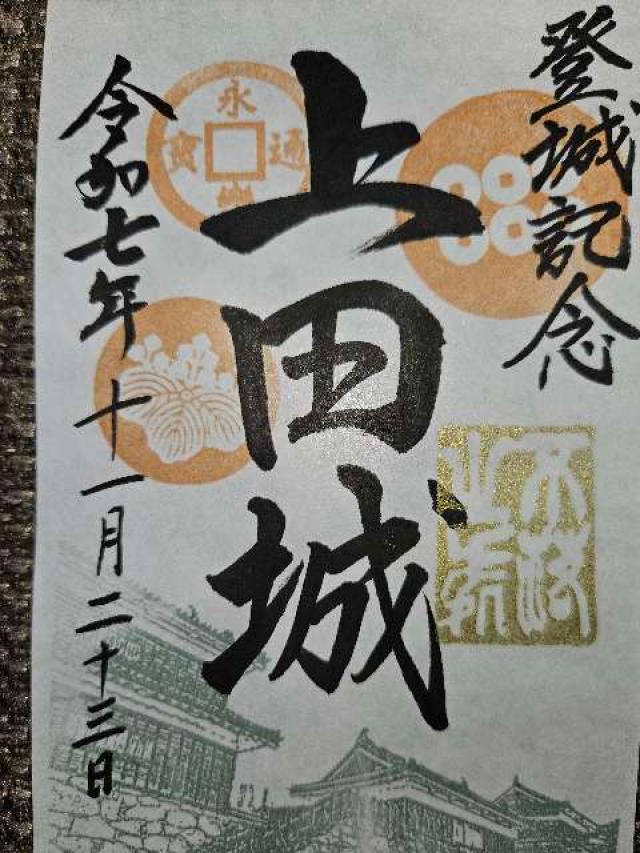 登城記念
上田城
令和七年十一月二十三日
永
通
寳
不落
之城